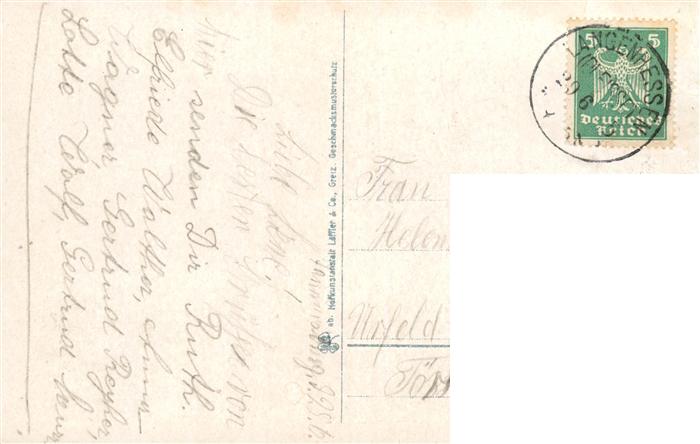 Liebe Lene!
Die besten Grüße von
hier senden Dir Ruth.
Elfriede Walther, Anna
Wagner, Gertrud Reyher,
Lotte Wolf, Gertrud
ab. Hofkunstanstalt Löffler & Co., Greiz. Geschmacksmusterschutz
5 5
Deutsches
Reich
LANGENHESSEN
Frau
Helen
Urfeld